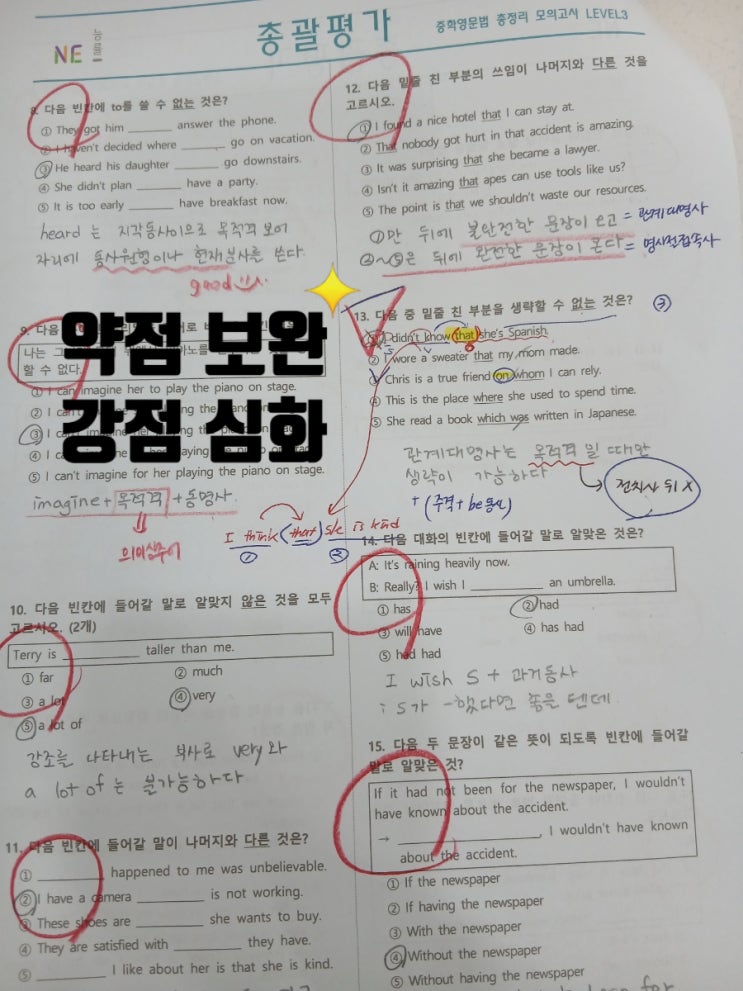 NE 능률
총괄평가
중학영문법 총정리 모의고사 LEVEL3
8. 다음 빈칸에 to를 쓸 수 없는 것은?
① They got him ______ answer the phone.
② I haven't decided where ______ go on vacation.
③ He heard his daughter ______ go downstairs.
④ She didn't plan ______ have a party.
⑤ It is too early ______ have breakfast now.
heard 는 지각동사이므로 목적격 보어
자리에 동사원형이나 현재분사를 쓴다.
good
약점 보완
강점 심화
9. 다음
나는 그
할 수 없다.
① I can imagine her to play the piano on stage.
② I can't
③ I
④ I
⑤ I can't imagine for her playing the piano on stage.
imagine + 목적격 + 동명사.
의미상주어
I think (that) she is kind
① ②
10. 다음 빈칸에 들어갈 말로 알맞지 않은 것을 모두
고르시오. (2개)
Terry is ______ taller than me.
① far ② much
③ a lot ④ very
⑤ a lot of
강조를 나타내는 부사로 very와
a lot of 는 불가능하다
11. 다음 빈칸에 들어갈 말이 나머지와 다른 것은?
① ______ happened to me was unbelievable.
② I have a camera ______ is not working.
③ These shoes are ______ she wants to buy.
④ They are satisfied with ______ they have.
⑤ ______ I like about her is that she is kind.
12. 다음 밑줄 친 부분의 쓰임이 나머지와 다른 것을
고르시오.
① I found a nice hotel that I can stay at.
② That nobody got hurt in that accident is amazing.
③ It was surprising that she became a lawyer.
④ Isn't it amazing that apes can use tools like us?
⑤ The point is that we shouldn't waste our resources.
①만 뒤에 불완전한 문장이 오고 = 관계대명사
②~⑤은 뒤에 완전한 문장이 온다 = 명사절접속사
13. 다음 중 밑줄 친 부분을 생략할 수 없는 것은? ③
① I didn't know that she's Spanish.
② I wore a sweater that my mom made.
③ Chris is a true friend on whom I can rely.
④ This is the place where she used to spend time.
⑤ She read a book which was written in Japanese.
관계대명사는 목적격 일 때만
생략이 가능하다
전치사 뒤 X
+ (주격 + be동사)
14. 다음 대화의 빈칸에 들어갈 말로 알맞은 것은?
A: It's raining heavily now.
B: Really? I wish I ______ an umbrella.
① has ② had
③ will have ④ has had
⑤ had had
I wish S + 과거동사
: S가 ~했다면 좋을 텐데.
15. 다음 두 문장이 같은 뜻이 되도록 빈칸에 들어갈
말로 알맞은 것?
If it had not been for the newspaper, I wouldn't
have known about the accident.
→ ______, I wouldn't have known
about the accident.
① If the newspaper
② If having the newspaper
③ With the newspaper
④ Without the newspaper
⑤ Without having the newspaper